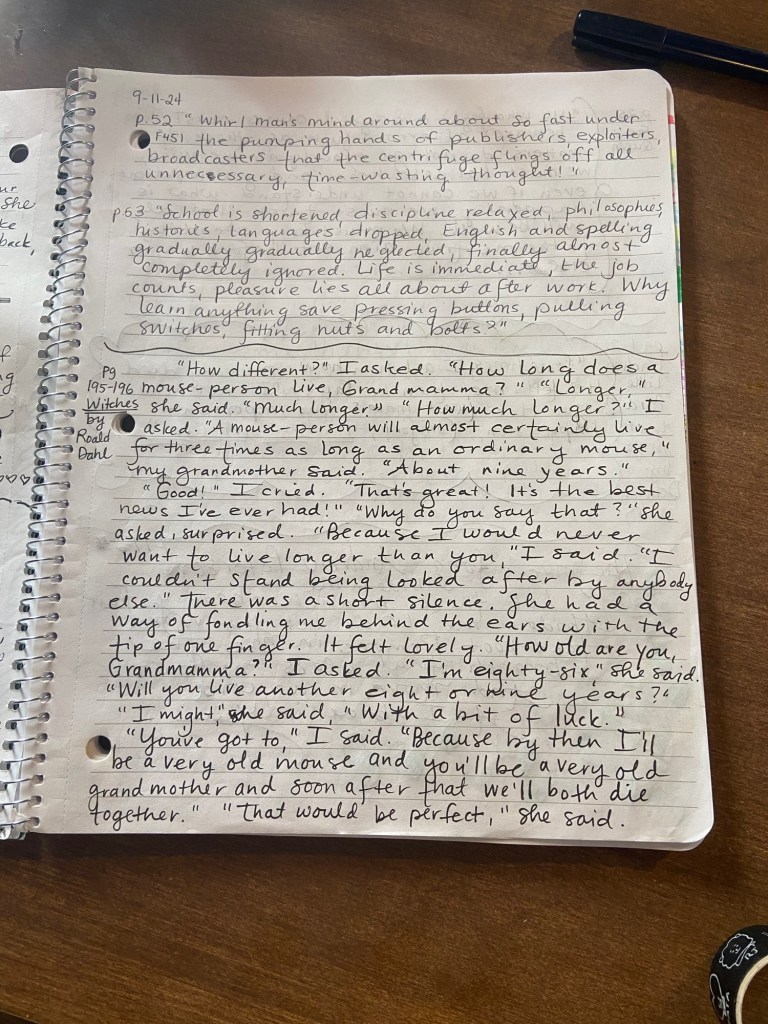 ur
She
ke
back,
9-11-24
p.52 "Whirl man's mind around about so fast under
F451 the pumping hands of publishers, exploiters,
broadcasters that the centrifuge flings off all
unnecessary, time-wasting thought!"
p.53 "School is shortened discipline relaxed, philosophies,
histories, languages dropped, English and spelling
gradually gradually neglected, finally almost
completely ignored. Life is immediate, the job
counts, pleasure lies all about after work. Why
learn anything save pressing buttons, pulling
switches, fitting nuts and bolts?"
Pg
195-196
Witches
by
Roald
Dahl
"How different?" I asked. "How long does a
mouse-person live, Grandmamma?" "Longer,"
she said. "Much longer" "How much longer?" I
asked. "A mouse-person will almost certainly live
for three times as long as an ordinary mouse,"
my grandmother said. "About nine years."
"Good!" I cried. "That's great! It's the best
news I've ever had!" "Why do you say that?" she
asked, surprised. "Because I would never
want to live longer than you," I said. "I
couldn't stand being looked after by anybody
else." There was a short silence. She had a
way of fondling me behind the ears with the
tip of one finger. It felt lovely. "How old are you,
Grandmamma?" I asked. "I'm eighty-six," she said.
"Will you live another eight or nine years?"
"I might," she said, "With a bit of luck."
"You've got to," I said. "Because by then I'll
be a very old mouse and you'll be a very old
grandmother and soon after that we'll both die
together." "That would be perfect," she said.